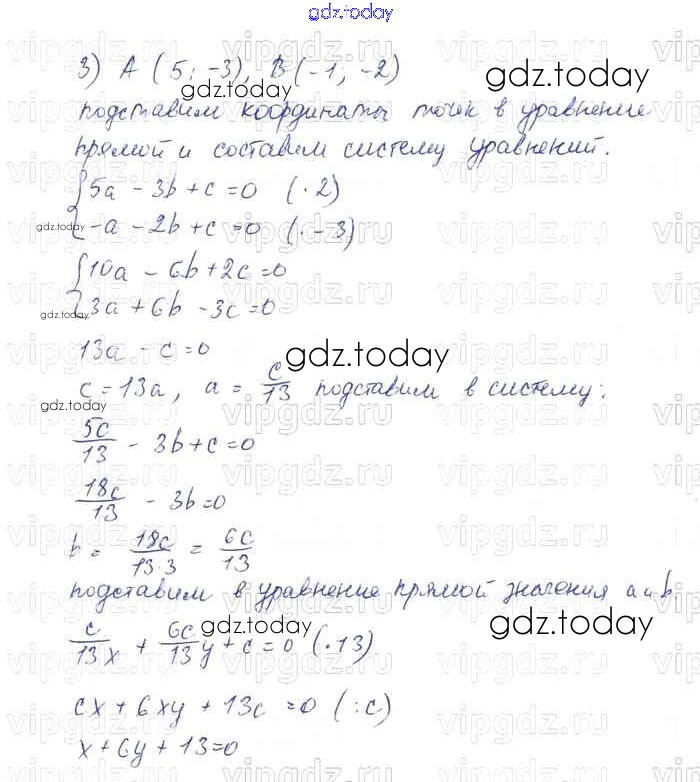 gdz.today
3) А (5; -3), В(-1; -2)
gdz.today
gdz.today
подставим координаты точек в уравнение
прямой и составим систему уравнений.
{5a - 3b + c = 0 (· 2)
gdz.today
-a - 2b + c = 0 (· -3)
{10a - 6b + 2c = 0
gdz.today
3a + 6b - 3c = 0
13a - c = 0
gdz.today
c = 13a, a = c/13 подставим в систему:
gdz.today
5c/13 - 3b + c = 0
18c/13 - 3b = 0
b = 18c/13·3 = 6c/13
подставим в уравнение прямой значения a и b
gdz.today
gdz.today
c/13 x + 6c/13 y + c = 0 (·13)
cx + 6xy + 13c = 0 (:c)
x + 6y + 13 = 0
vipgdz.ru